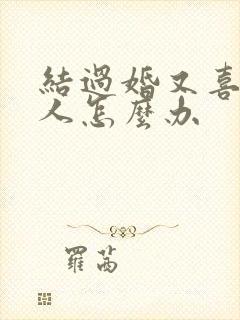 結過婚又喜
人怎麼办
羅茜